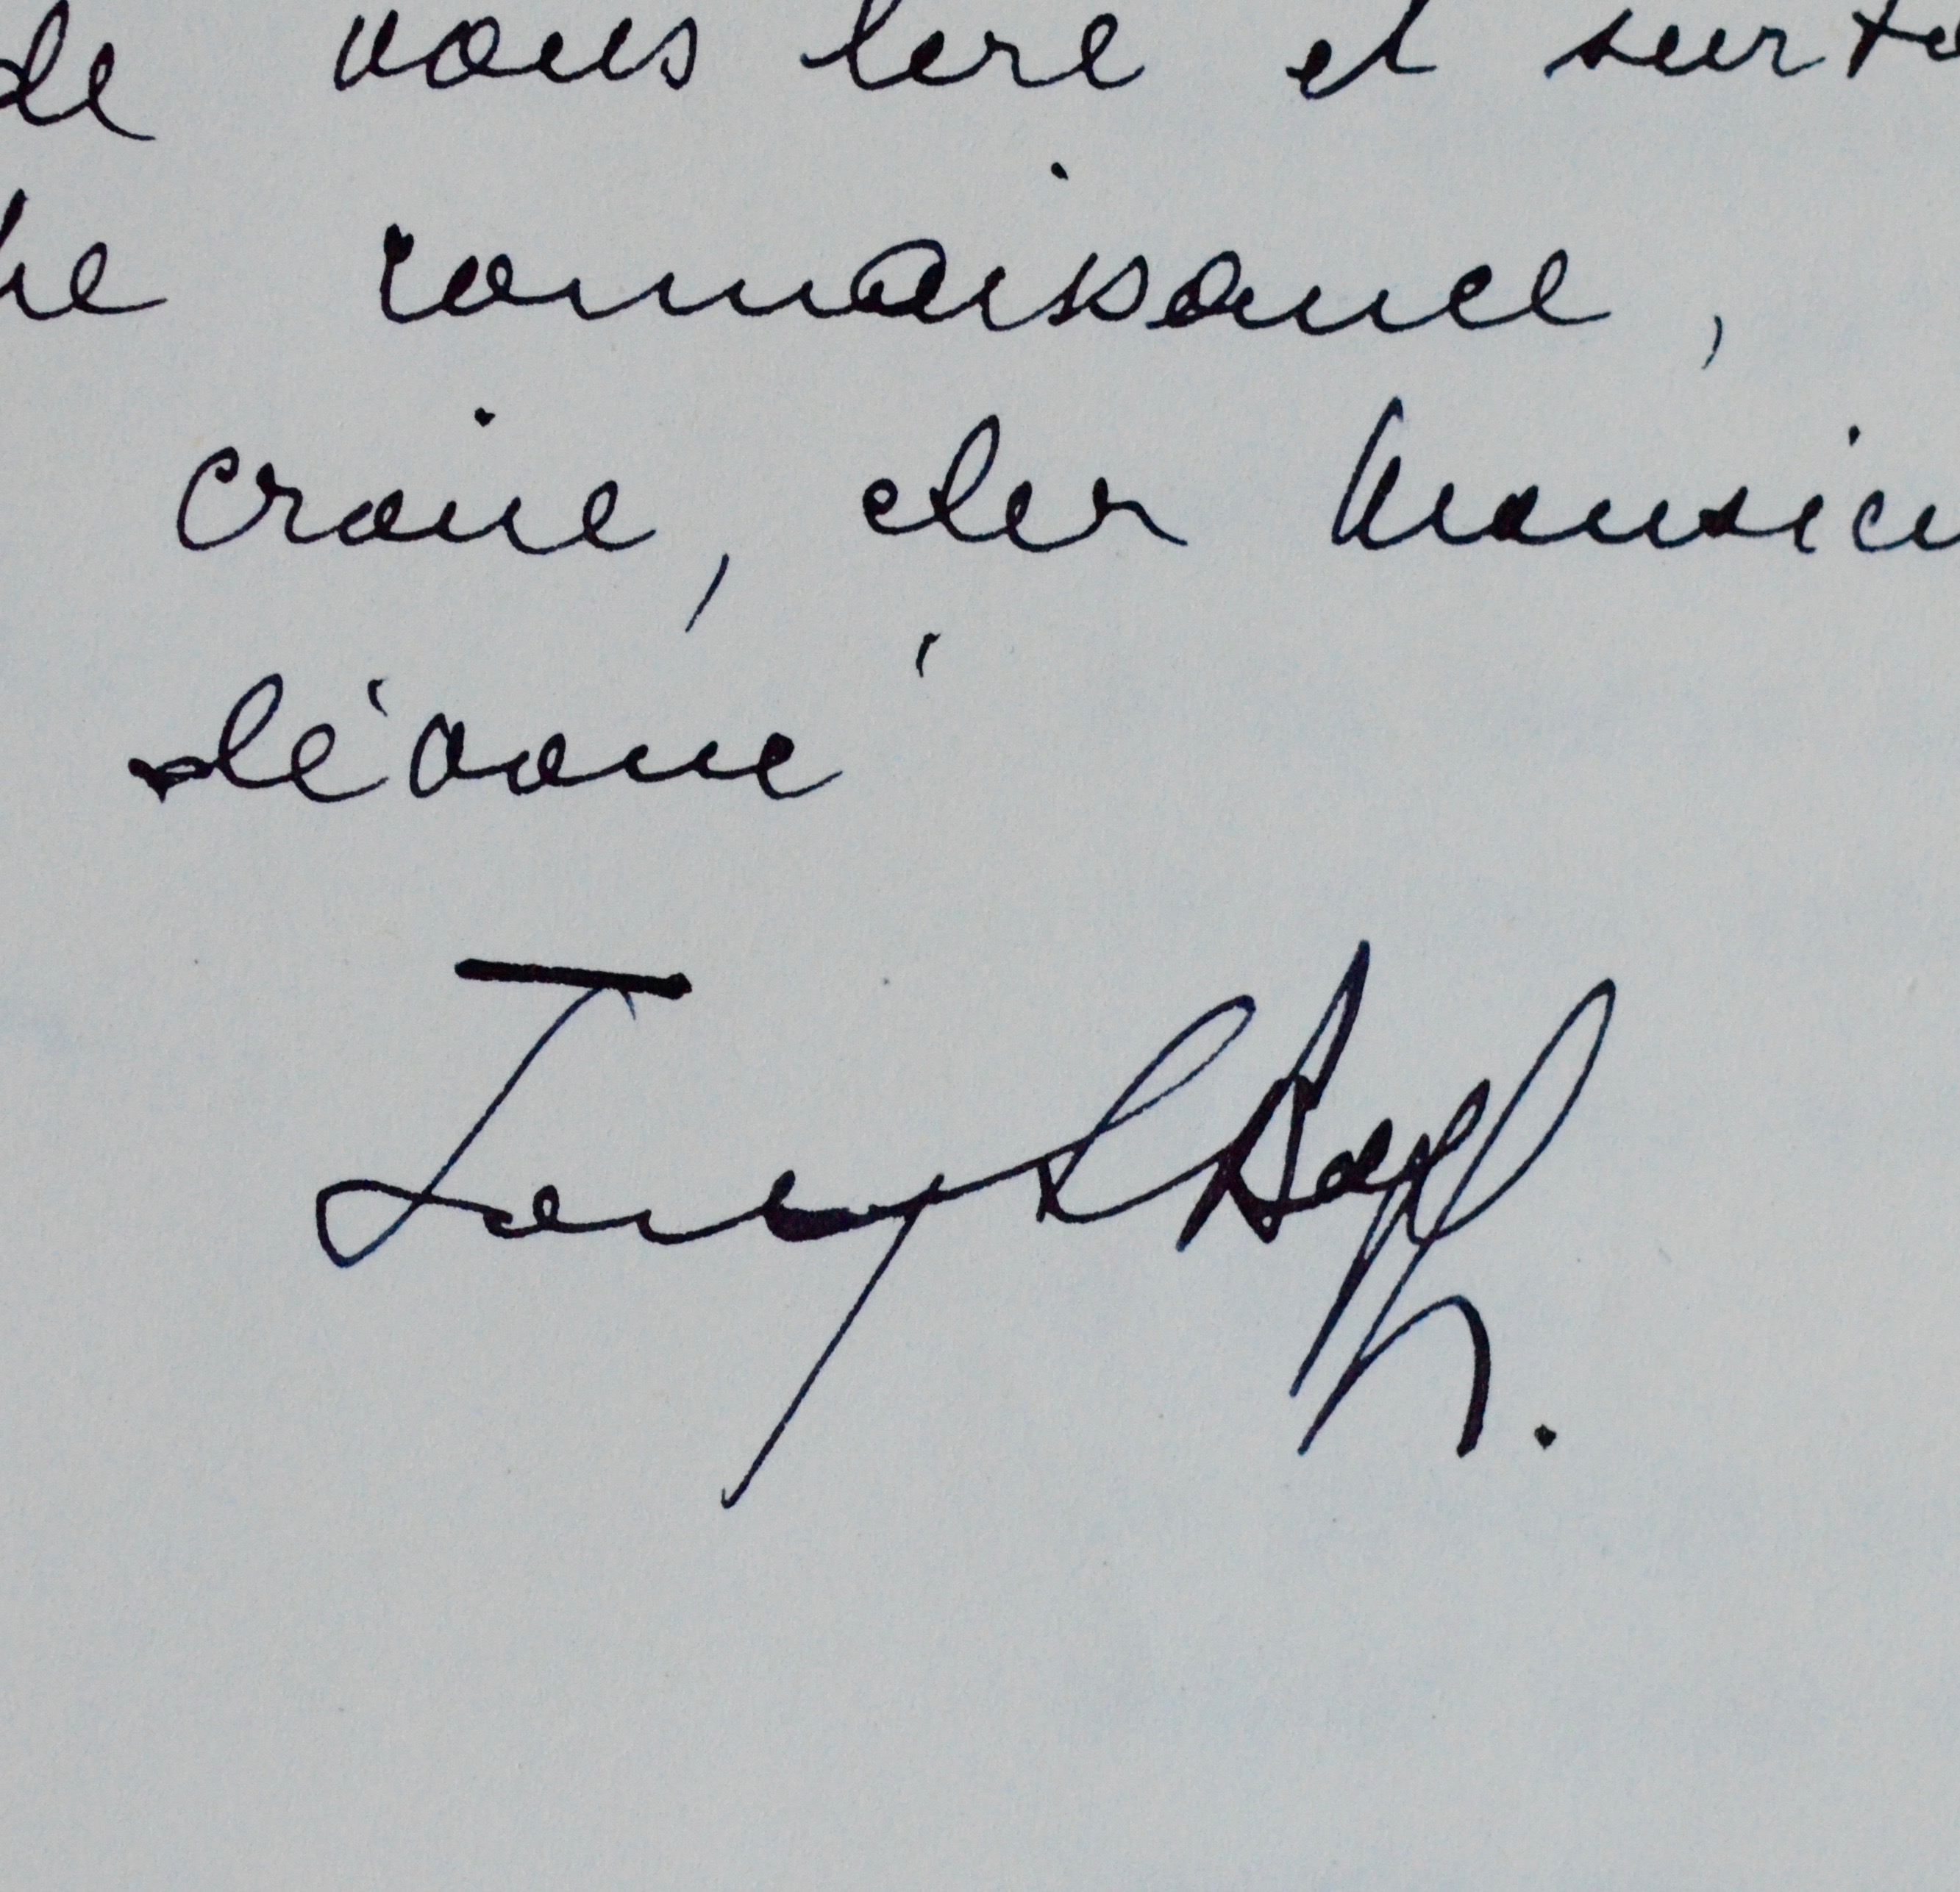 de vous lire et surto
tre connaissance,
croire, cher Monsieu
dévoué